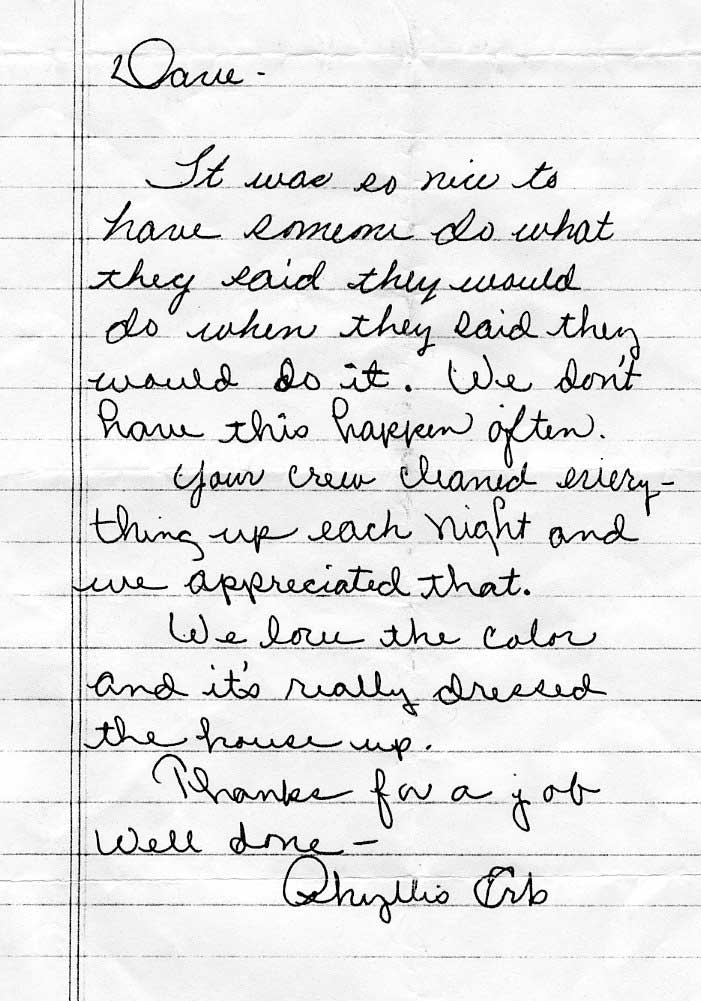 Dave -
It was so nice to
have someone do what
they said they would
do when they said they
would do it. We don't
have this happen often.
Your crew cleaned every-
thing up each night and
we appreciated that.
We love the color
and it's really dressed
the house up.
Thanks for a job
well done -
Phyllis Erb